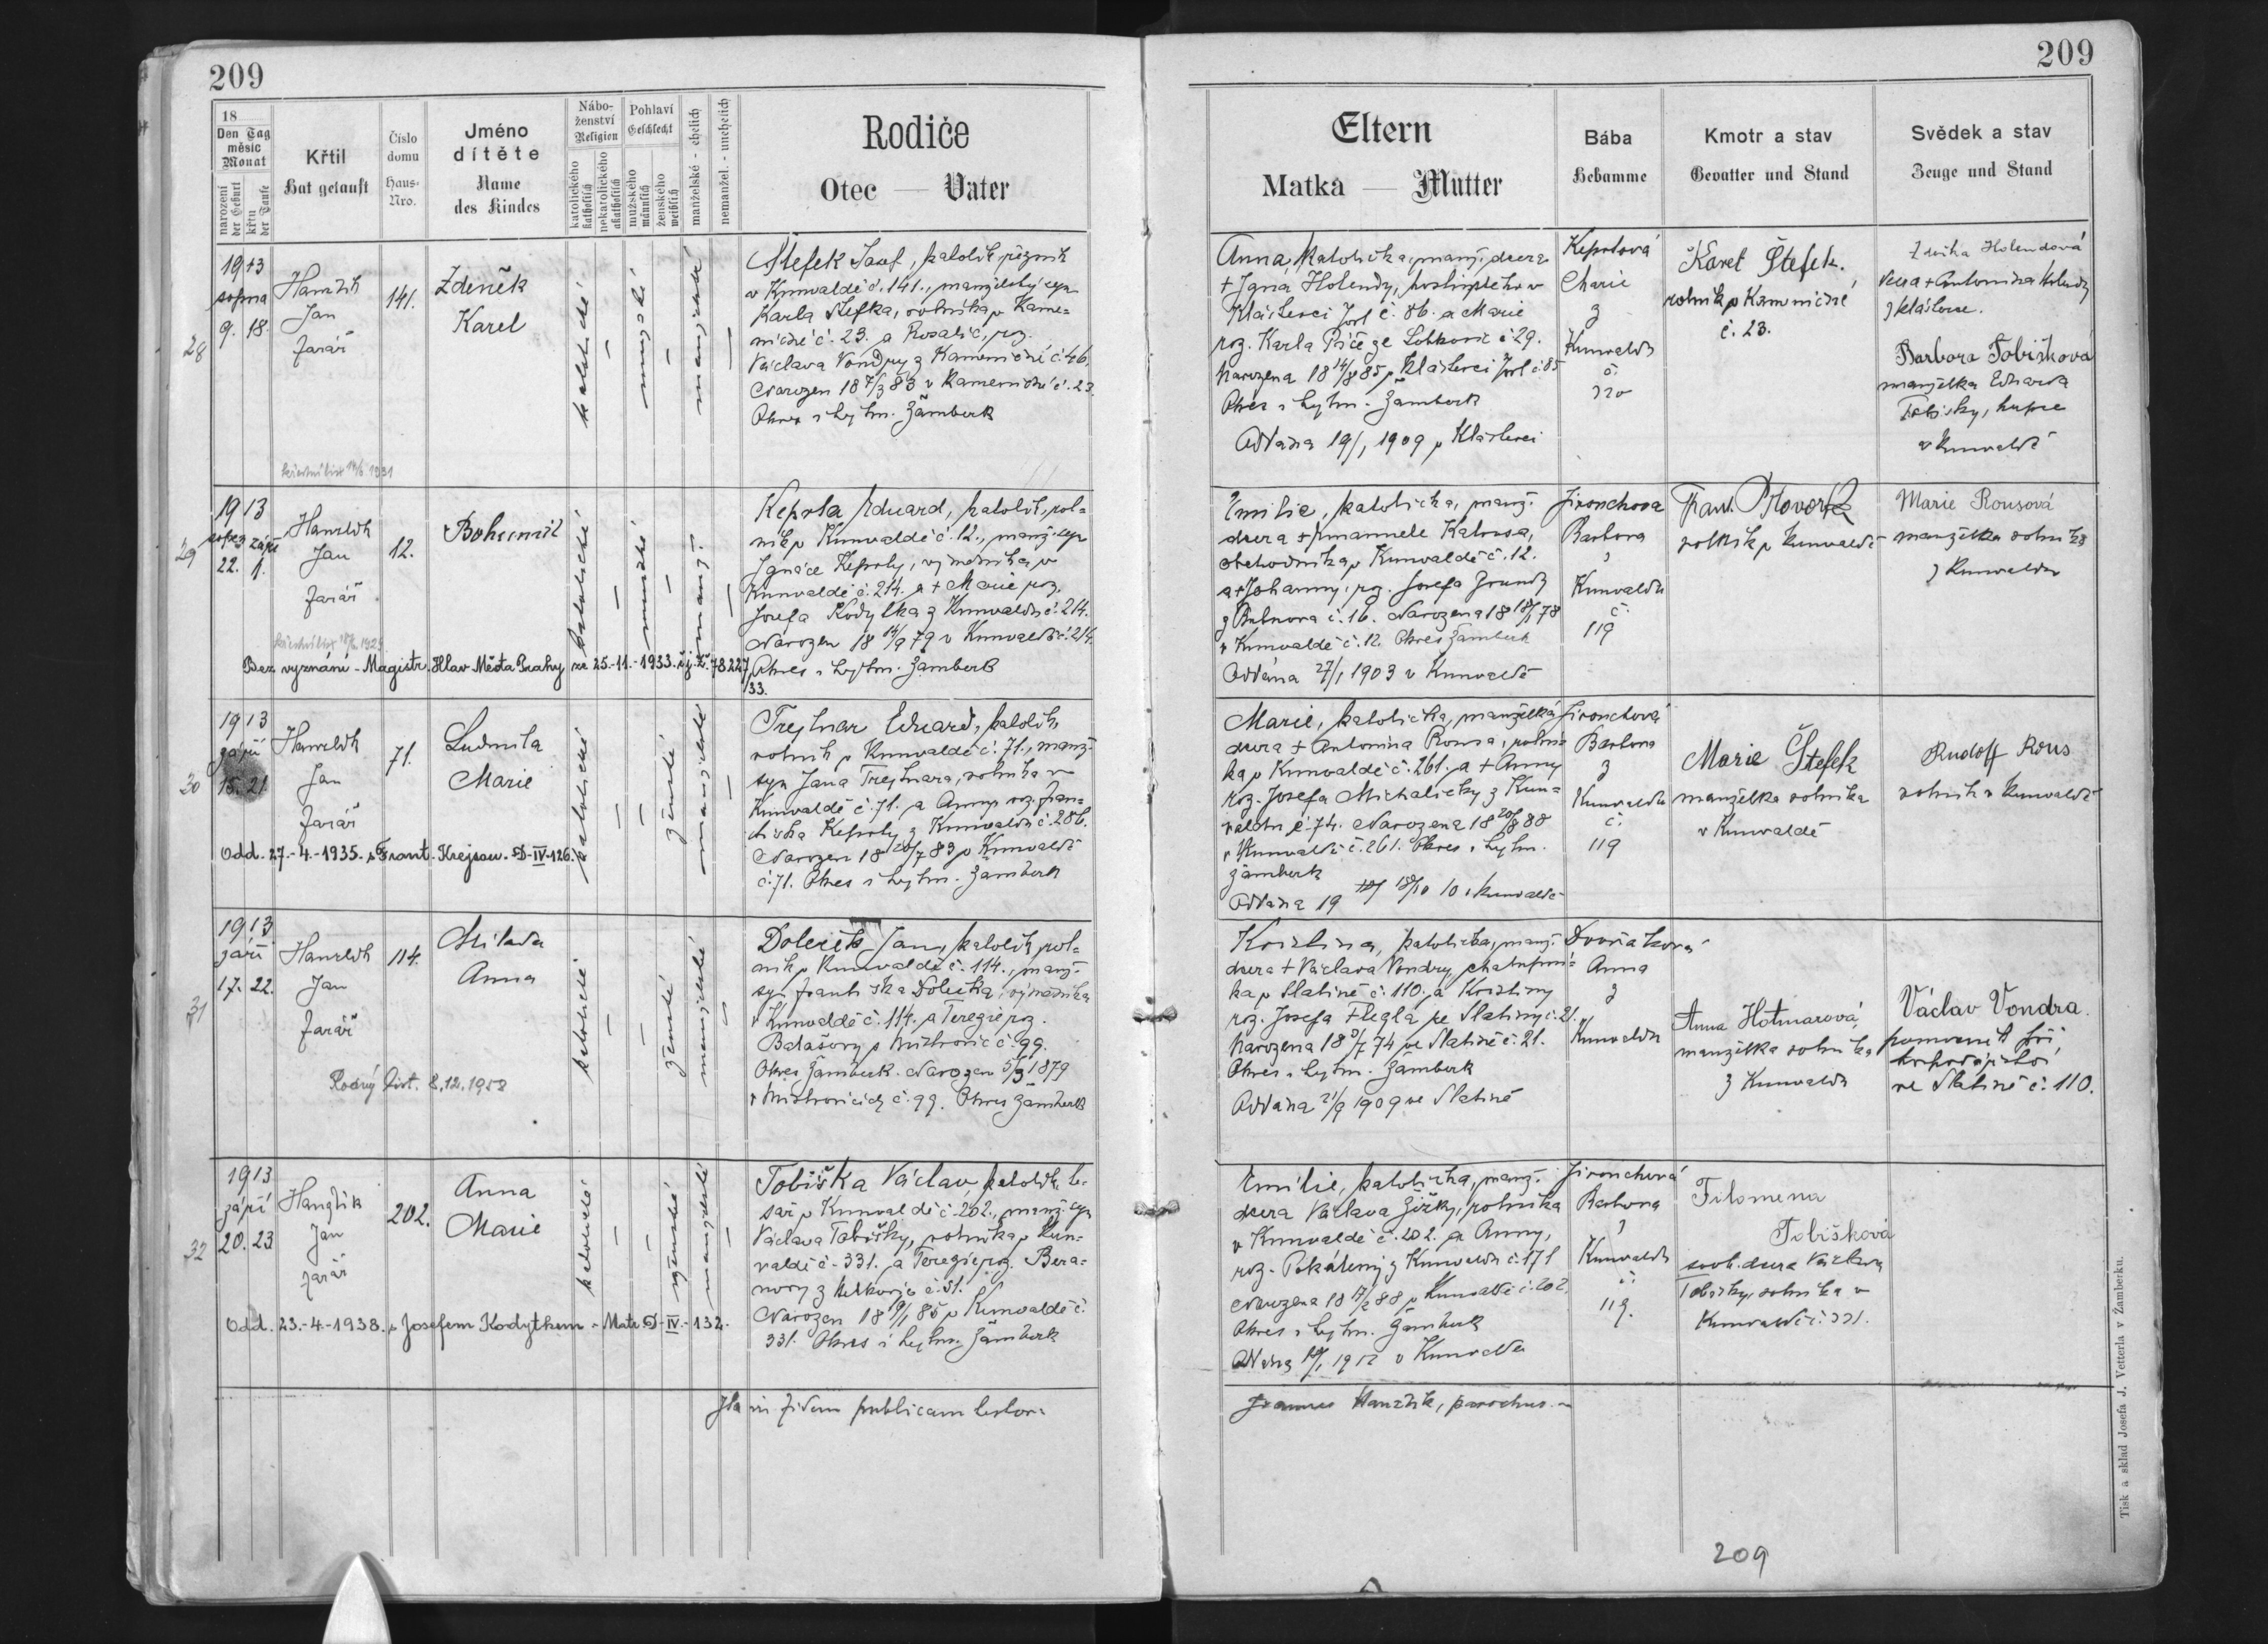 209
209
18
Den Tag
měsíc
Monat
narození
der Geburt
křtu
der Taufe
Křtil
Hat getauft
Číslo
domu
Haus-
Nro.
Jméno
dítěte
Name
des Kindes
Nábo-
ženství
Religion
katolického
katholisch
nekatolického
akatholisch
Pohlaví
Geschlecht
mužského
männlich
ženského
weiblich
manželské - ehelich
nemanžel. - unehelich
Rodiče
Otec — Vater
Eltern
Matka — Mutter
Bába
Hebamme
Kmotr a stav
Gevatter und Stand
Svědek a stav
Zeuge und Stand
28
1913
srpna
9. 18.
Jan
farář
141.
Zdeněk
Karel
katolické
mužské
manželské
Štefek Josef, katolík
v Kunvaldě č. 141., manželský syn
Karla Štefka, rolníka v Kame-
ničné č. 23. a Rosalie, roz.
Václava Vondry z Kameničné č. 46.
Narozen 18 7/3 83 v Kameničné č. 23.
Okres i hejtm. Žamberk
Anna, katolička, manž. dcera
+ Igná Holendy, hostinského v
Klášterci č. 86. a Marie
roz. Karla č. 29.
Narozena 18 14/8 85 v Klášterci č. 85
Okres i hejtm. Žamberk
Oddána 19/1 1909 v Klášterci
Keprtová
Marie
z
Kunvaldu
č.
Karel Štefek.
rolník v Kameničné
č. 23.
Holendová
dcera + Antonína Holendy
z Klášterce.
Barbora Tobišková
manželka Eduarda
Tobišky, kupce
v Kunvaldě
křestní list 1931
29
1913
srpna září
22. 1.
Jan
farář
12.
Bohumil
katolické
mužské
manž.
Keprta Eduard, katolík, rol-
ník v Kunvaldě č. 12., manž. syn
Ignáce Keprty, výměnkáře v
Kunvaldě č. 214. a + Marie roz.
Josefa Kodytka z Kunvaldu č. 214.
Narozen 18 14/9 79 v Kunvaldě č. 214.
Okres i hejtm. Žamberk
Bez vyznání - Magistr. Hlav. Města Prahy ze 25.-11.-1933. č.j. 78227/
33.
Emilie, katolička, manž.
dcera + Emanuele Kalousa,
obchodníka v Kunvaldě č. 12.
a + Johanny, roz. Josefa
z č. 16. Narozena 18 78
v Kunvaldě č. 12. Okres Žamberk
Oddána 27/1 1903 v Kunvaldě
Jirouchova
Barbora
z
Kunvaldu
č.
119
rolník v Kunvaldě
Marie Rousová
manželka rolníka
z Kunvaldu
30
1913
září
15. 21.
Jan
farář
71.
Ludmila
Marie
katolické
ženské
manželské
Trejtnar Eduard, katolík
rolník v Kunvaldě č. 71., manž.
syn Jana Trejtnara, rolníka v
Kunvaldě č. 71. a Anny roz. Fran-
tiska Keprty z Kunvaldu č. 286.
Narozen 18 20/7 83 v Kunvaldě
č. 71. Okres i hejtm. Žamberk
Odd. 27.-4.-1935. s Frant. Krejsou. D-IV-126.
Marie, katolička, manželská
dcera + Antonína Rousa, rolní-
ka v Kunvaldě č. 261. a + Anny
roz. Josefa Michaličky z Kun-
valdu č. 74. Narozena 18 20/8 88
v Kunvaldě č. 261. Okres i hejtm.
Žamberk
Oddána 19 10 v Kunvaldě
Jirouchová
Barbora
z
Kunvaldu
č.
119
Marie Štefek
manželka rolníka
v Kunvaldě
Rudolf Rous
rolník v Kunvaldě
31
1913
září
17. 22.
Jan
farář
114.
Milada
Anna
katolické
ženské
manželské
Doleček Jan, katolík, rol-
ník v Kunvaldě č. 114., manž.
syn Františka Dolečka, výměnkáře
v Kunvaldě č. 114. a Terezie roz.
z Mistrovic č. 99.
Okres Žamberk. Narozen 5/3 1879
v Mistrovicích č. 99. Okres Žamberk
Rodný list. 8.12.1958
Kristina, katolička, manž.
dcera + Václava Vondry, chalupní-
ka v Slatině č. 110. a Kristiny
roz. Josefa Flegla ze Slatiny č. 21.
Narozena 18 74 ve Slatině č. 21.
Okres i hejtm. Žamberk
Oddána 21/9 1909 ve Slatině
Dvořáková
Anna
z
Kunvaldu
Anna Hotmarová,
manželka rolníka
z Kunvaldu
Václav Vondra
pomocník při
hospodářství
ve Slatině č. 110.
32
1913
září
20. 23
Jan
farář
202.
Anna
Marie
katolické
ženské
manželské
Tobiška Václav, katolík, te-
sař v Kunvaldě č. 202., manž. syn
Václava Tobišky, rolníka v Kun-
valdě č. 331. a Terezie roz. Bera-
novy z č. 51.
Narozen 18 19/1 85 v Kunvaldě č.
331. Okres i hejtm. Žamberk
Odd. 23.-4.-1938. s Josefem Kodytkem - Matr. D-IV.-132.
Emilie, katolička, manž.
dcera Václava Žižky, rolníka
v Kunvaldě č. 202. a Anny,
roz. z Kunvaldu č. 171
Narozena 18 17/2 88 v Kunvaldě č. 202.
Okres i hejtm. Žamberk
Oddána 1912 v Kunvaldu
Jirouchová
Barbora
z
Kunvaldu
č.
119.
Filomena
Tobišková
svob. dcera Václava
Tobišky, rolníka v
Kunvaldě č. 331.
Ita in fidem publicam testor:
Joannes Hanzlík, parochus.
209
Tisk a sklad Josefa J. Vetterla v Žamberku.